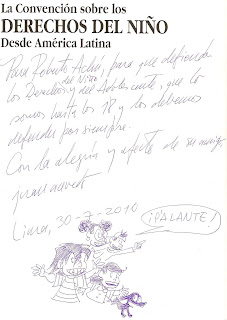 La Convención sobre los
DERECHOS DEL NIÑO
Desde América Latina
Para Roberto Achú, para que defienda
los Derechos del Niño y del Adolescente, que lo
somos hasta los 18 y los debemos
defender por siempre.
Con la alegría y afecto de su amigo
Lima, 30-7-2010
¡PALANTE!